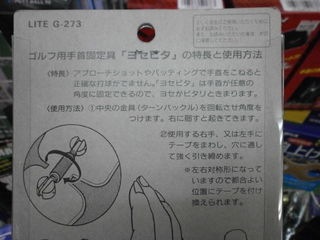 LITE G-273
ゴルフ用手首固定具「ヨセピタ」の特長と使用方法
〈特長〉アプローチショットやパッティングで手首をこねると
正確な打球ができません。「ヨセピタ」は手首が任意の
角度に固定できるので、ヨセがピタリときまります。
〈使用方法〉①中央の金具(ターンバックル)を回転させ角度を
つけます。右に廻すと起きてきます。
②使用する右手、又は左手に
テープをまわし、穴に通し
て強く引き締めます。
※左右対称形になって
いますので都合よい
位置にテープを付け
換えられます。